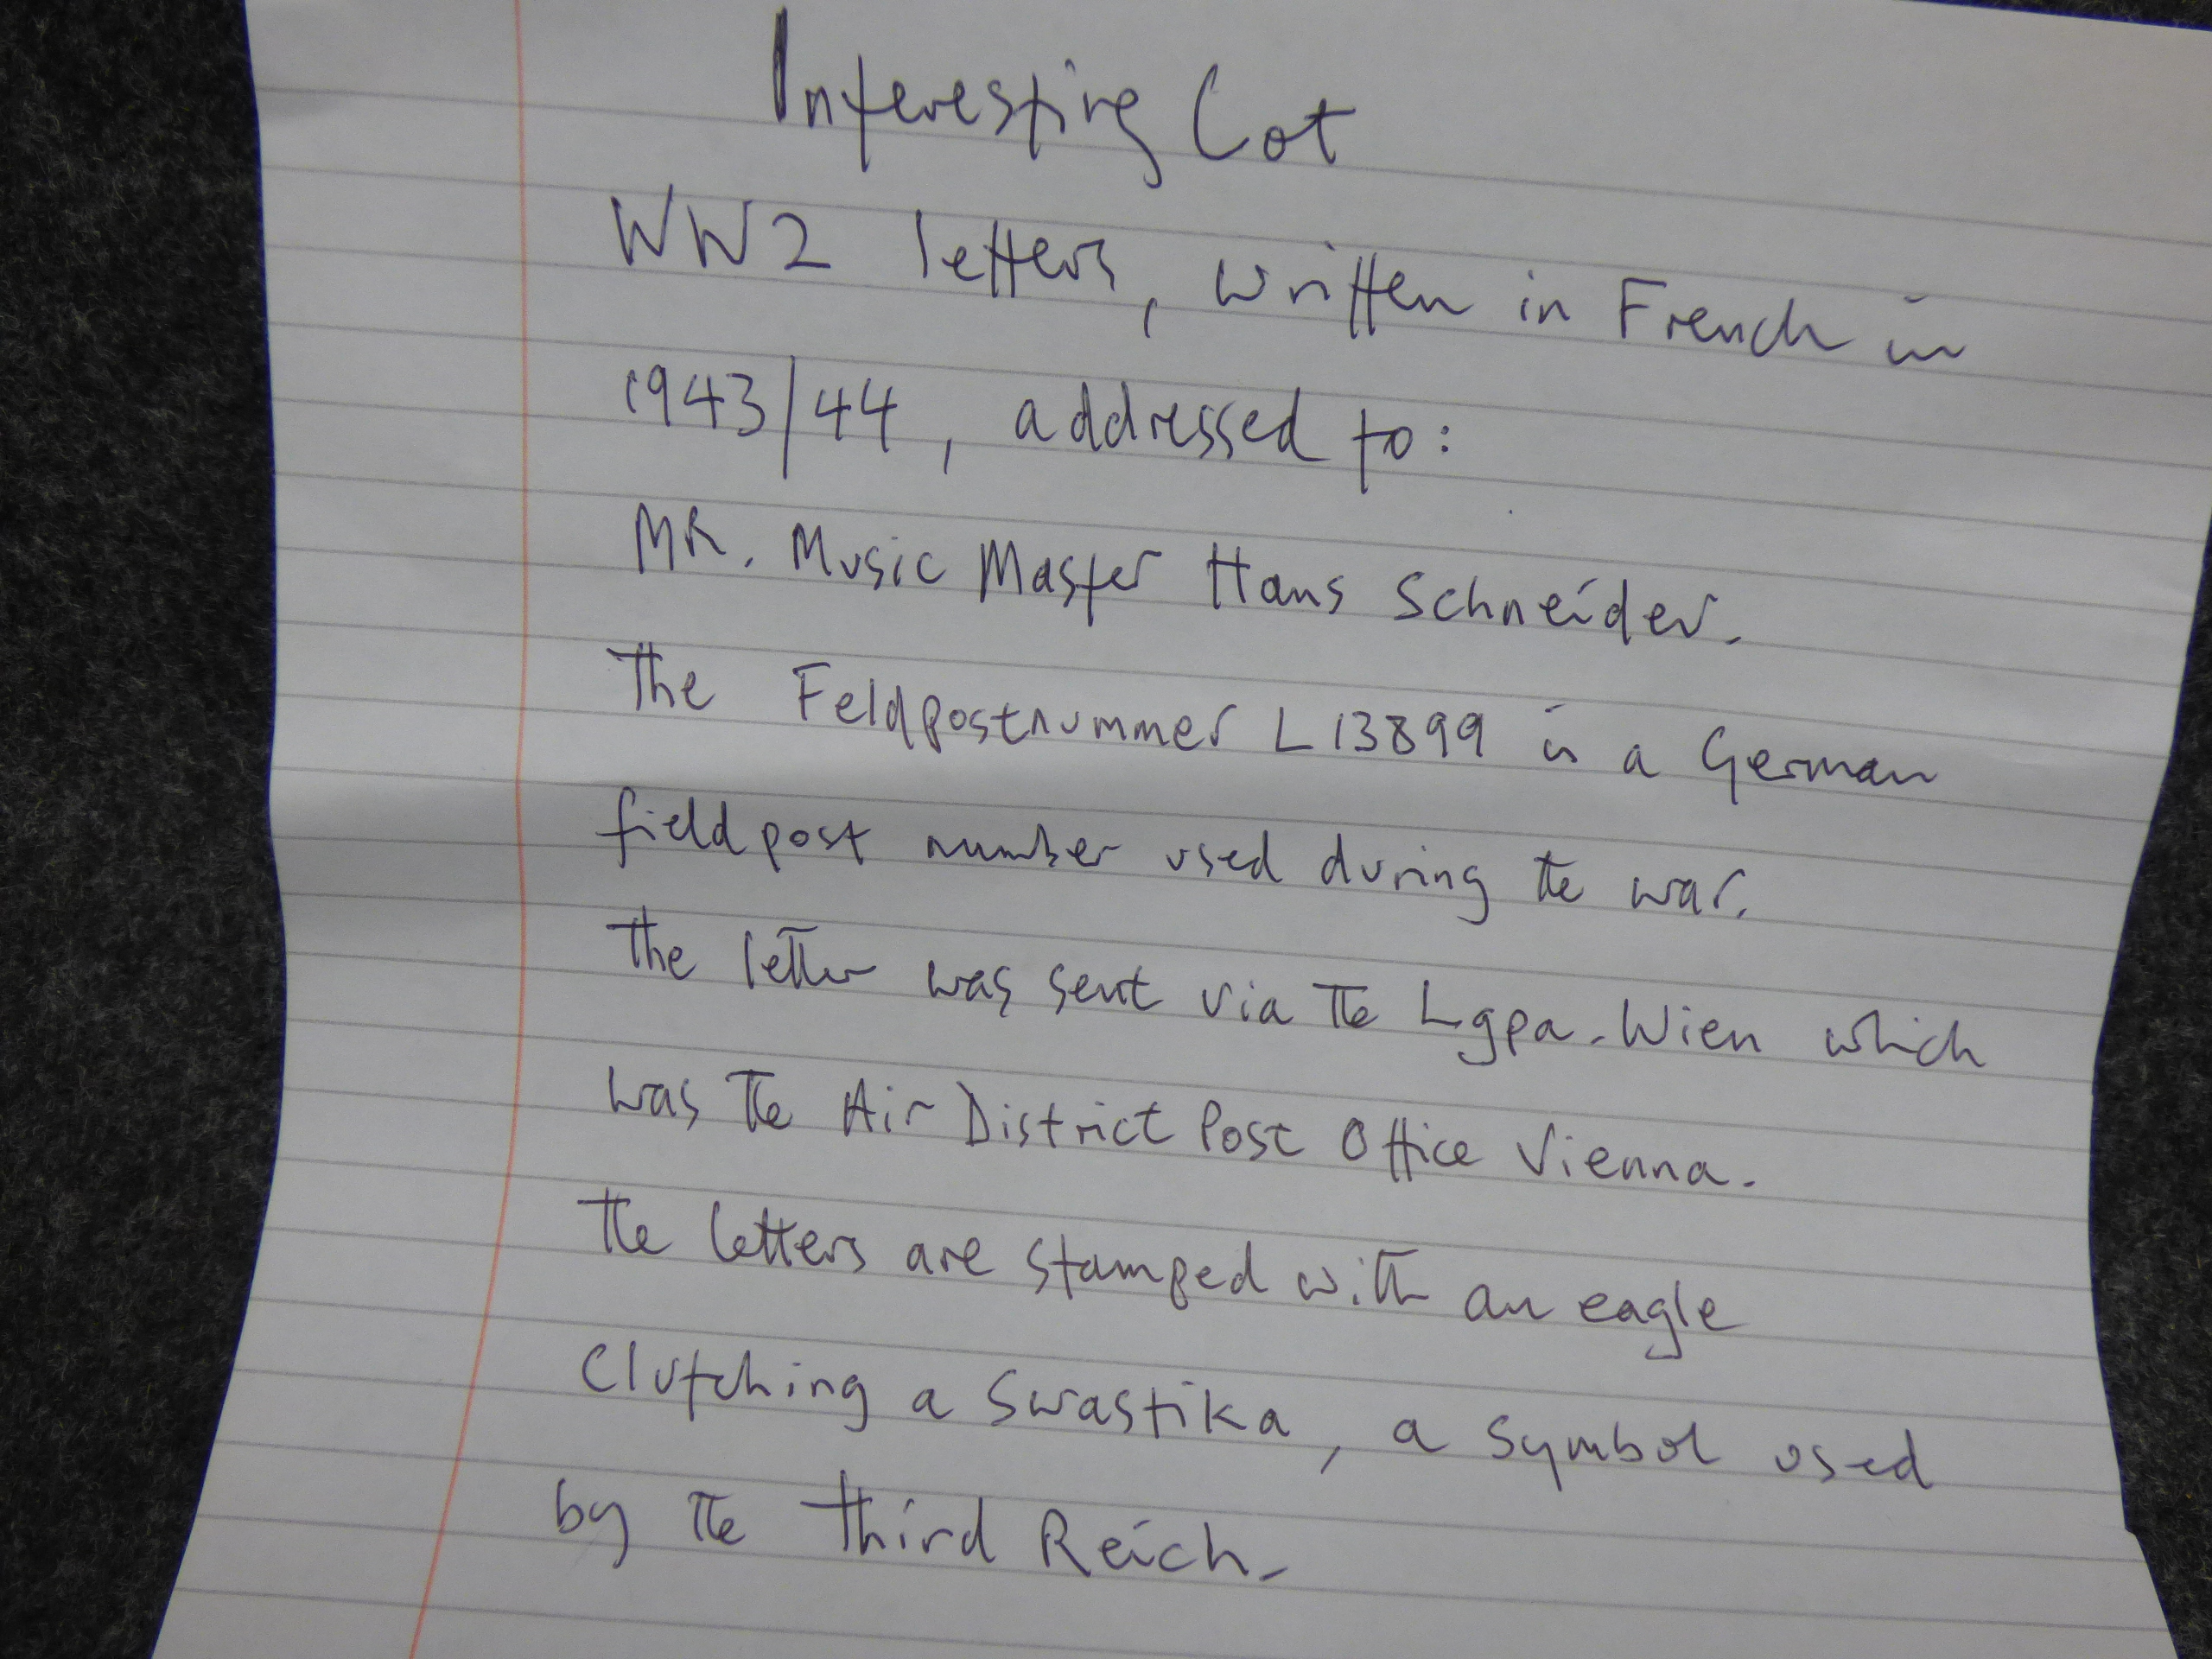 Interesting Lot
WW2 letters, written in French in
1943/44, addressed to:
MR. Music Master Hans Schneider.
The Feldpostnummer L13899 is a German
fieldpost number used during the war.
The letter was sent via the Lgpa. Wien which
was the Air District Post Office Vienna.
The letters are stamped with an eagle
clutching a Swastika, a symbol used
by the Third Reich.